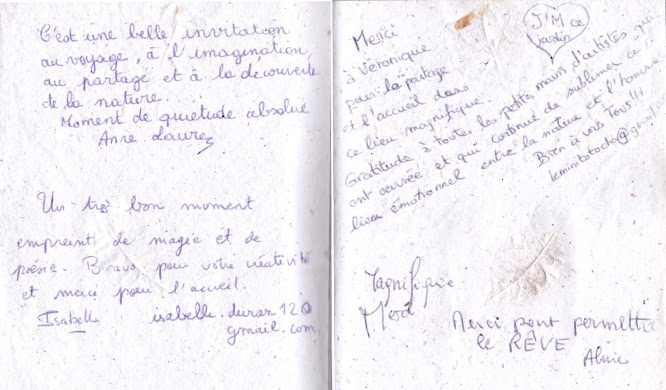 C'est une belle invitation
au voyage, à l'imagination,
au partage et à la découverte
de la nature...
Moment de quiétude absolue
Anne Laure
Un très bon moment
empreint de magie et de
poésie. Bravo pour votre créativité
et merci pour l'accueil.
Isabelle isabelle.duran120
gmail.com
J'M ce
jardin
Merci
à Véronique
pour le partage
et l'accueil dans
ce lieu magnifique.
Gratitude à toutes les petites mains d'artistes qui
ont œuvré et qui continue de sublimer ce
lien émotionnel entre la nature et l'homme
Bien à vous Tous!!!
Magnifique
Merci
Merci pour permettre
le RÊVE